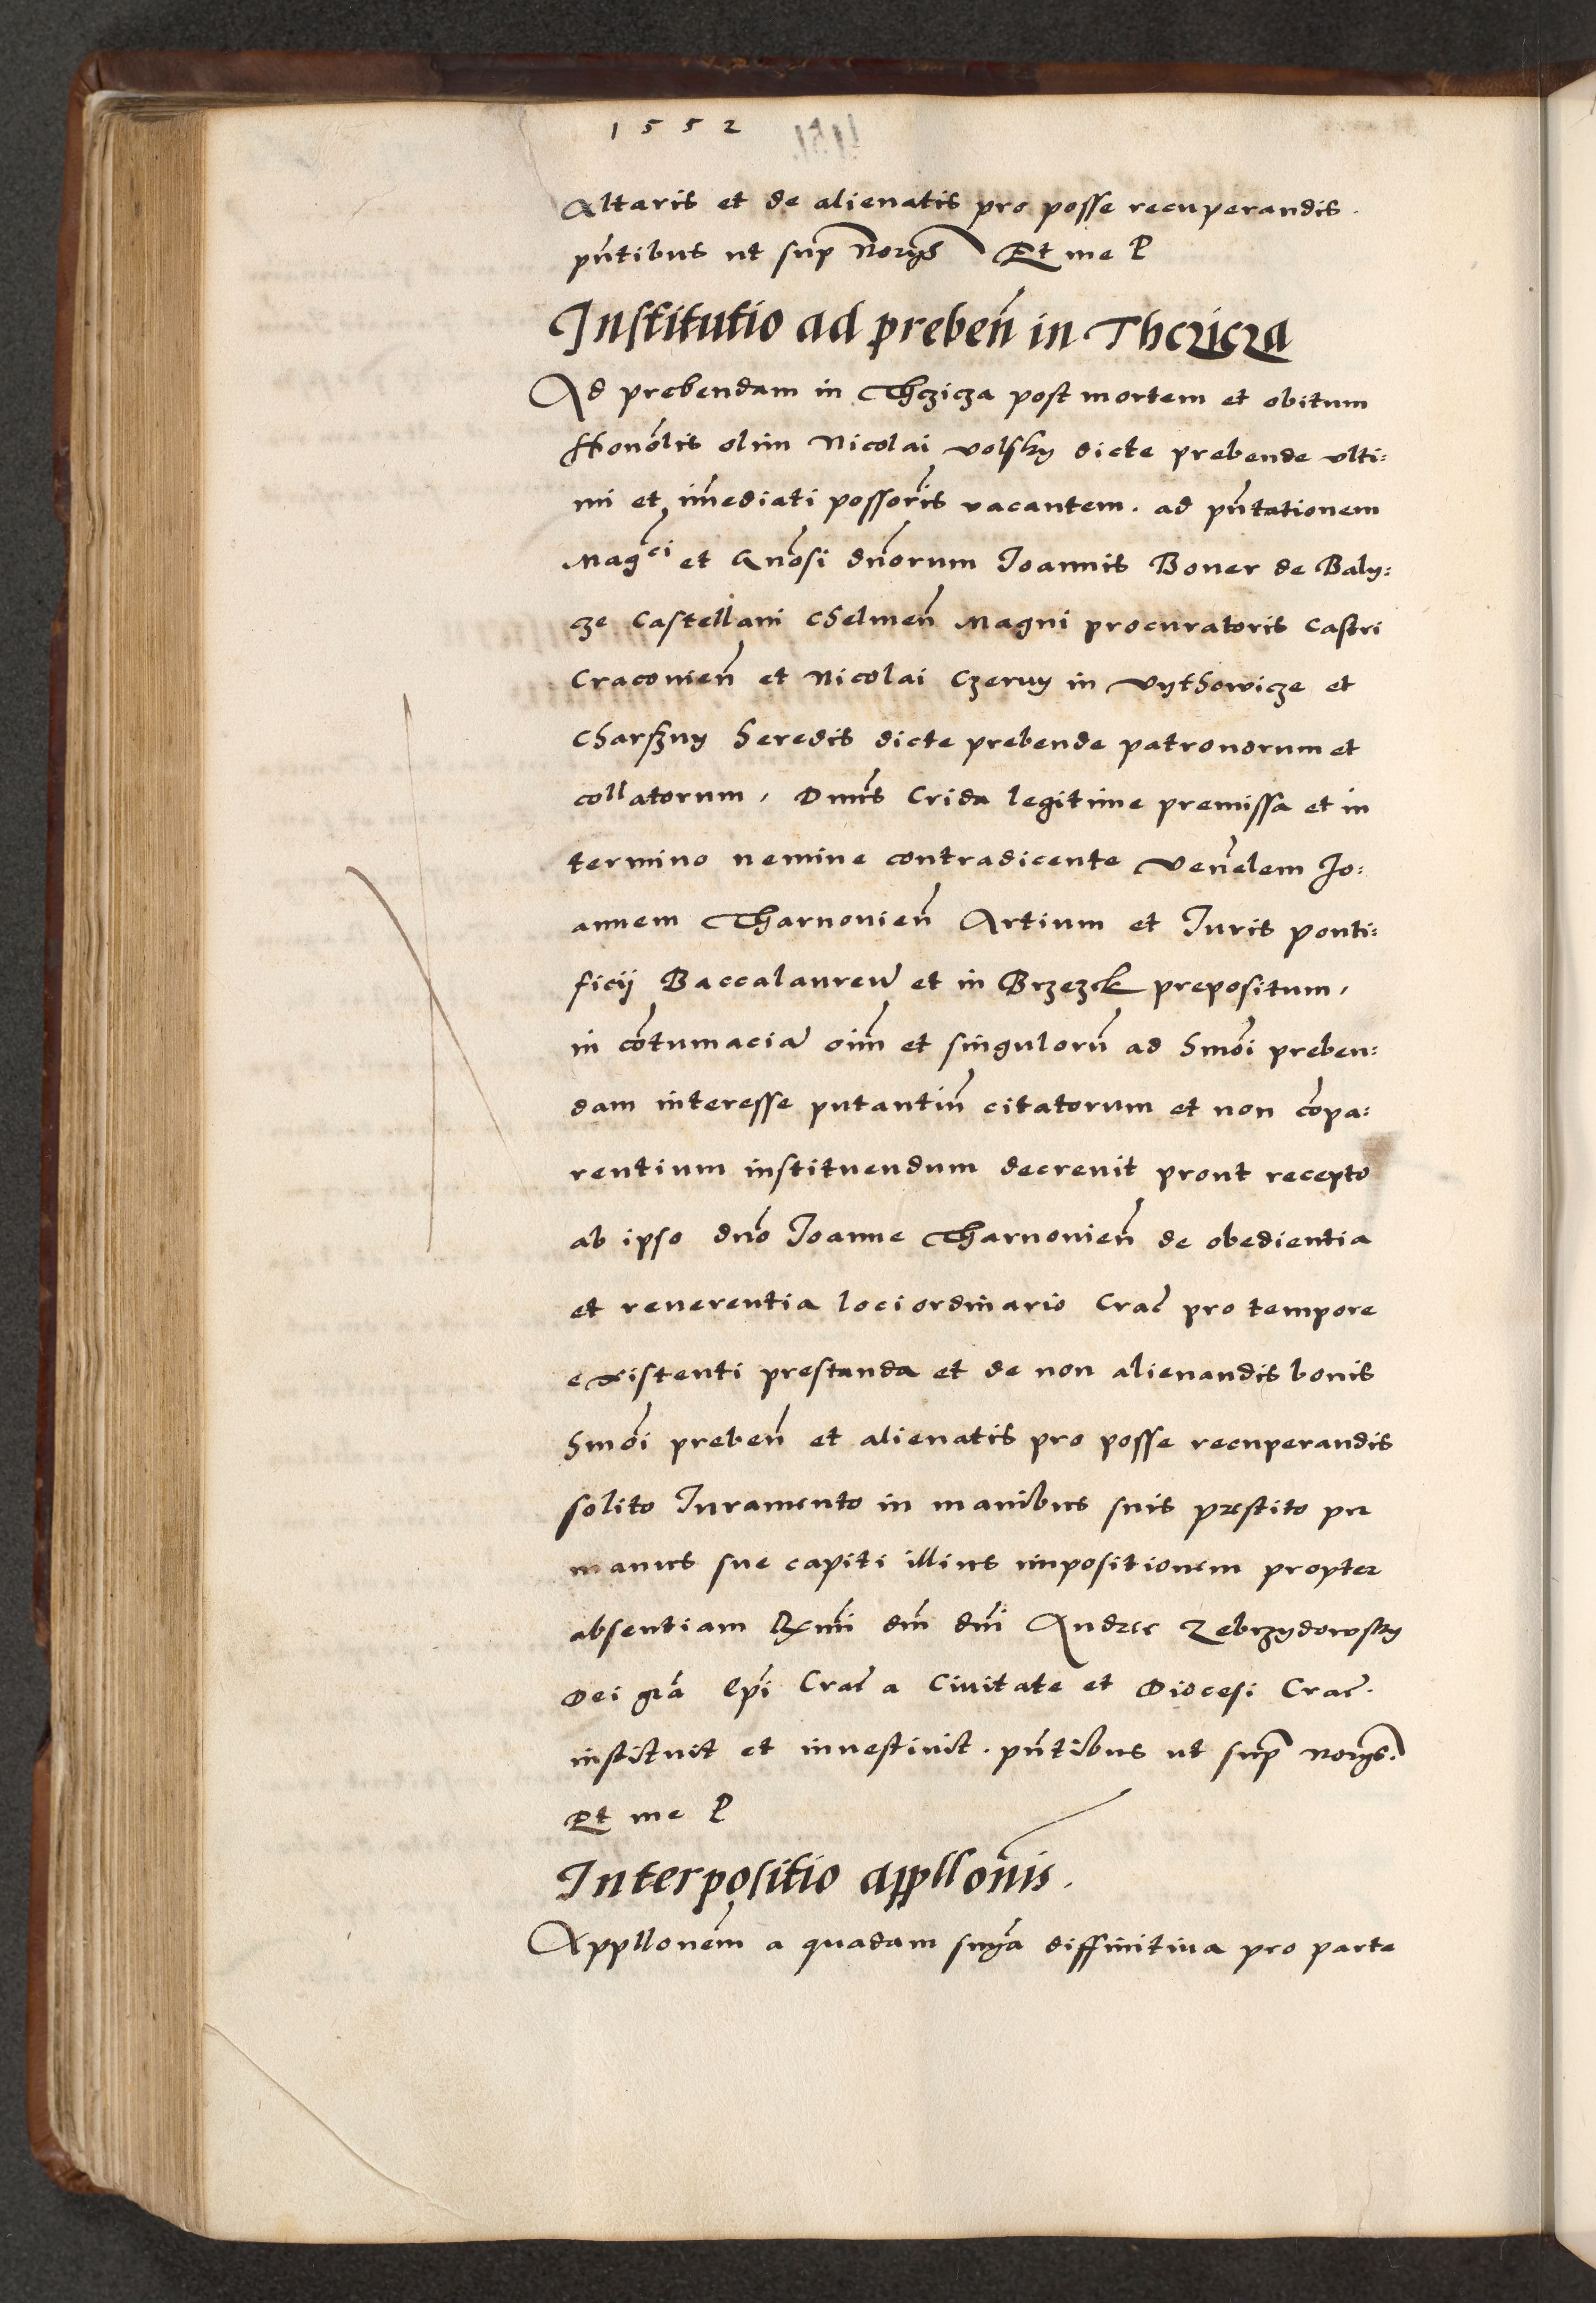 1552
Altaris et de alienatis pro posse recuperandis.
pñtibus ut sup Norys Et me P
Institutio ad prebeñ in Thczicza
Ad prebendam in Thczicza post mortem et obitum
Honõlis olim Nicolai volsky dicte prebende ulti:
mi et im̃ediati possoris̃ vacantem. ad pñtationem
Magci et Gnõsi dnõrum Joannis Boner de Baly:
cze Castellani Chelmeñ Magni procuratoris Castri
Cracovieñ et Nicolai Czerny in Vythowicze et
Charszny heredis dicte prebende patronorum et
collatorum, Dnus̃ Crida legitime premissa et in
termino nemine contradicente Veneñlem Jo:
annem Tharnovieñ Artium et Juris ponti:
ficij Baccalaureũ et in Brzezek prepositum,
in cõtumaciã oim̃ et singulorũ ad hmõi preben:
dam interesse putantiũ citatorum et non cõpa:
rentium instituendum decrevit prout recepto
ab ipso dnõ Joanne Tharnovieñ de obedientia
et reverentia loci ordinario Crac̃ pro tempore
existenti prestanda et de non alienandis bonis
hmõi prebeñ et alienatis pro posse recuperandis
solito Juramento in manibus suis prestito per
manus sue capiti illius impositionem propter
absentiam Rxmi dm̃ dni Andree Zebrzydowsky
Dei grã Epĩ Crac̃ a Civitate et Diocesi Crac̃.
instituit et investivit. pñtibus ut sup norys.
Et me P
Interpositio appllonis̃.
Appllonẽm a quadam snyã diffinitiva pro parte